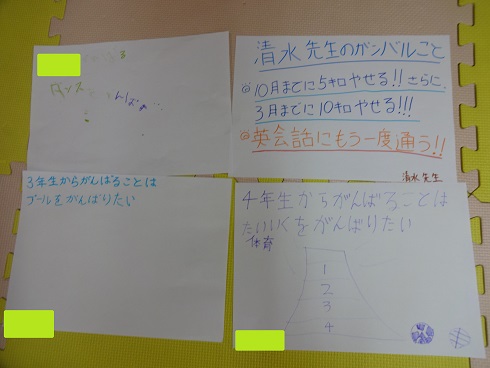 る
ダンス
んばる…
清水先生のガンバルこと
◎10月までに5キロやせる!!さらに
3月までに10キロやせる!!!
◎英会話にもう一度通う!!
清水先生
3年生からがんばることは
プールをがんばりたい
4年生からがんばることは
たいいくをがんばりたい
体育
1
2
3
4